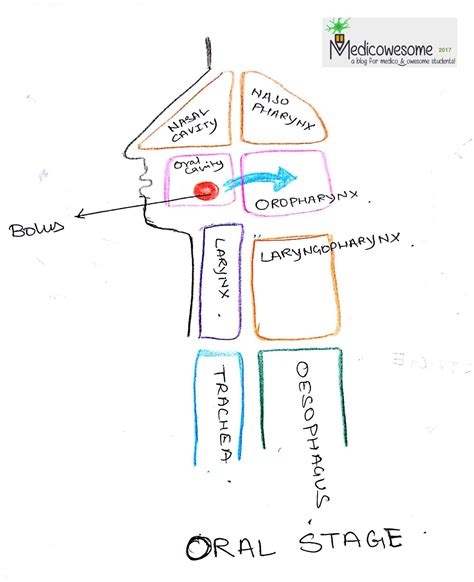 Medicowesome 2017
a blog for medico & awesome students!
NASAL
CAVITY
NASO
PHARYNX
Oral
cavity
OROPHARYNX
Bolus
LARYNX
LARYNGOPHARYNX
TRACHEA
OESOPHAGUS
ORAL STAGE